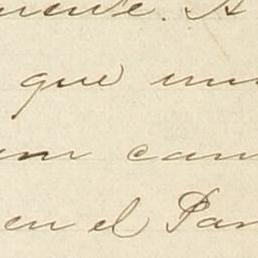 mente. A
que un
um can
en el Par